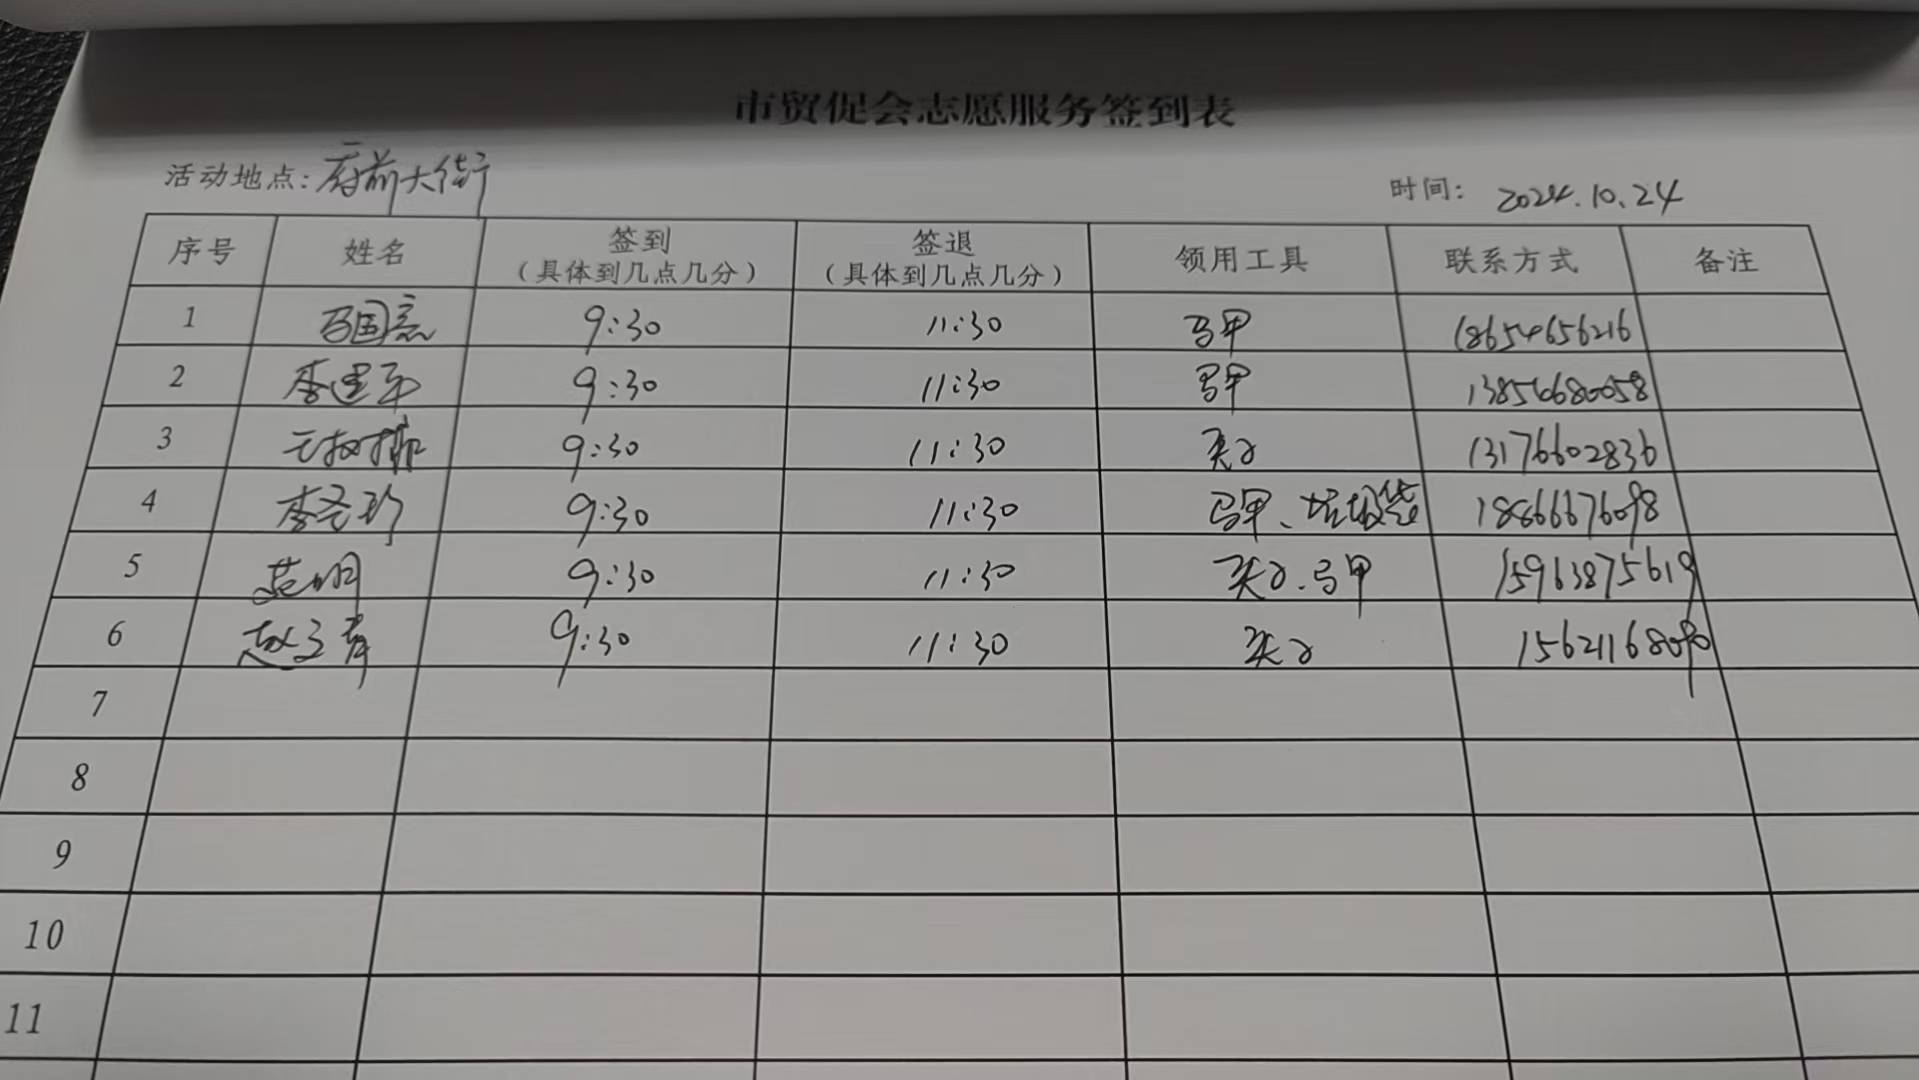 市贸促会志愿服务签到表
活动地点:府前大街 时间: 2024.10.24
序号 姓名 签到（具体到几点几分） 签退（具体到几点几分） 领用工具 联系方式 备注
1 马国亮 9:30 11:30 马甲 18654656216
2 李建军 9:30 11:30 马甲
3 9:30 11:30 夹子 13176602836
4 李圣珍 9:30 11:30 马甲、垃圾袋 18866676098
5 范明 9:30 11:30 夹子.马甲 15963875619
6 赵立青 9:30 11:30 夹子 15621168090
7
8
9
10
11